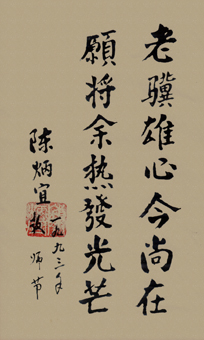 老骥雄心今尚在
願将余热發光芒
陈炳宜
一九九三年
师节